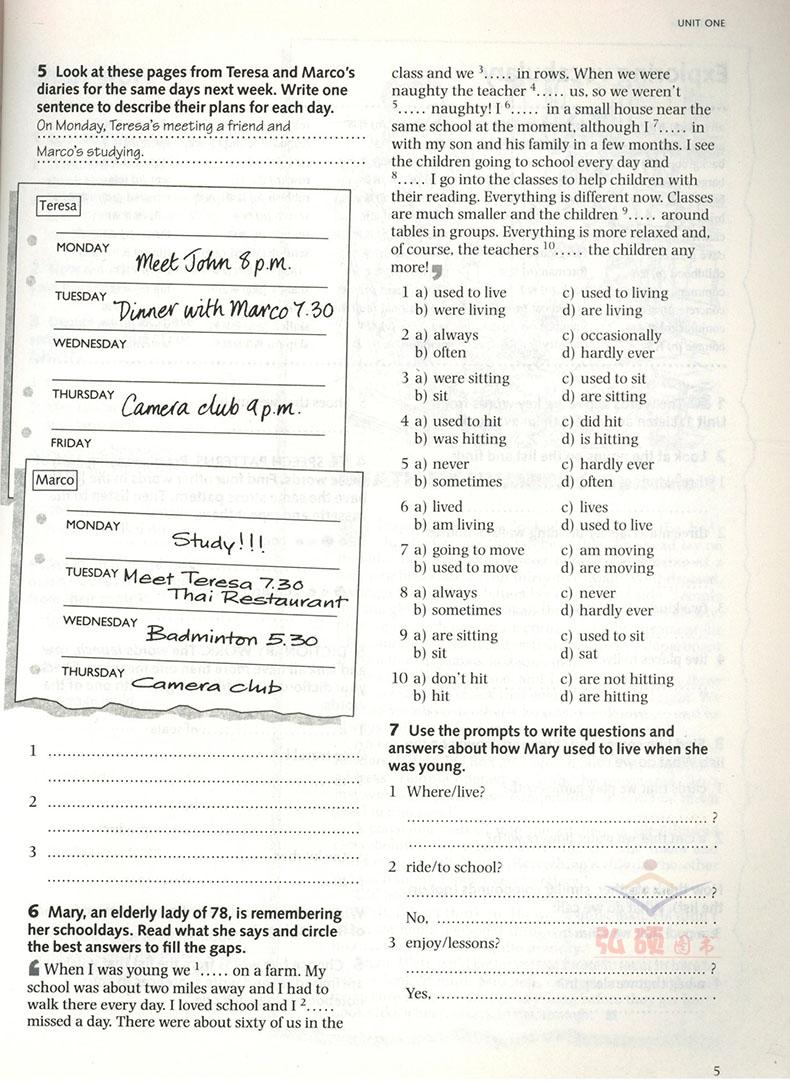 UNIT ONE
5 Look at these pages from Teresa and Marco's
diaries for the same days next week. Write one
sentence to describe their plans for each day.
On Monday, Teresa's meeting a friend and
Marco's studying.
Teresa
MONDAY
Meet John 8 p.m.
TUESDAY
Dinner with Marco 7.30
WEDNESDAY
THURSDAY
Camera club 9 p.m.
FRIDAY
Marco
MONDAY
Study!!!
TUESDAY Meet Teresa 7.30
Thai Restaurant
WEDNESDAY
Badminton 5.30
THURSDAY
Camera club
1
2
3
6 Mary, an elderly lady of 78, is remembering
her schooldays. Read what she says and circle
the best answers to fill the gaps.
When I was young we 1..... on a farm. My
school was about two miles away and I had to
walk there every day. I loved school and I 2.....
missed a day. There were about sixty of us in the
class and we 3..... in rows. When we were
naughty the teacher 4..... us, so we weren't
5..... naughty! I 6..... in a small house near the
same school at the moment, although I 7..... in
with my son and his family in a few months. I see
the children going to school every day and
8..... I go into the classes to help children with
their reading. Everything is different now. Classes
are much smaller and the children 9..... around
tables in groups. Everything is more relaxed and,
of course, the teachers 10..... the children any
more!
1 a) used to live c) used to living
b) were living d) are living
2 a) always c) occasionally
b) often d) hardly ever
3 a) were sitting c) used to sit
b) sit d) are sitting
4 a) used to hit c) did hit
b) was hitting d) is hitting
5 a) never c) hardly ever
b) sometimes d) often
6 a) lived c) lives
b) am living d) used to live
7 a) going to move c) am moving
b) used to move d) are moving
8 a) always c) never
b) sometimes d) hardly ever
9 a) are sitting c) used to sit
b) sit d) sat
10 a) don't hit c) are not hitting
b) hit d) are hitting
7 Use the prompts to write questions and
answers about how Mary used to live when she
was young.
1 Where/live?
?
.
2 ride/to school?
?
No, .
3 enjoy/lessons?
?
Yes, .
弘硕图书
5